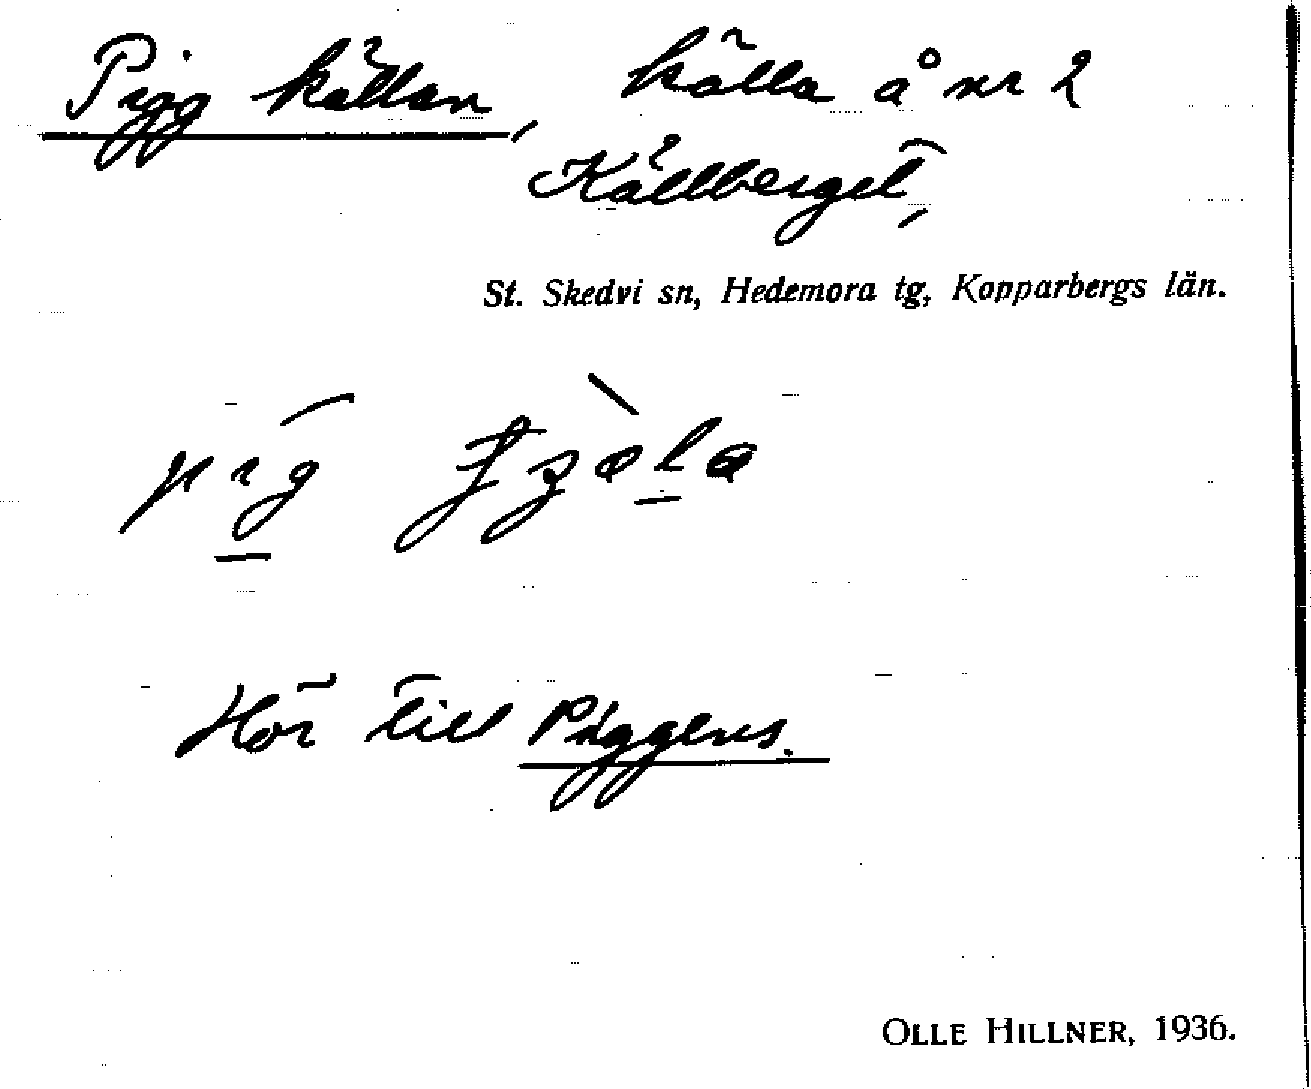 Piggkällan, källa å nr 2
Källberget,
St. Skedvi sn, Hedemora tg, Kopparbergs län.
Hör till Piggens.
OLLE HILLNER, 1936.